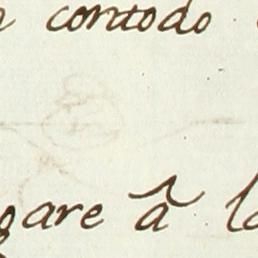 contodo
gare â la